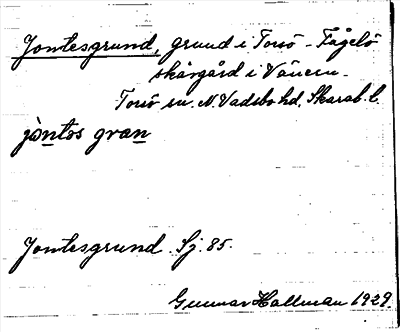 Jontesgrund, grund i Torsö - Fågelö
skärgård i Vänern.
Torsö sn. N. Vadsbo hd, Skarab. l.
jòntos gran
Jontesgrund. Sj. 85.
Gunnar Hallman 1929.